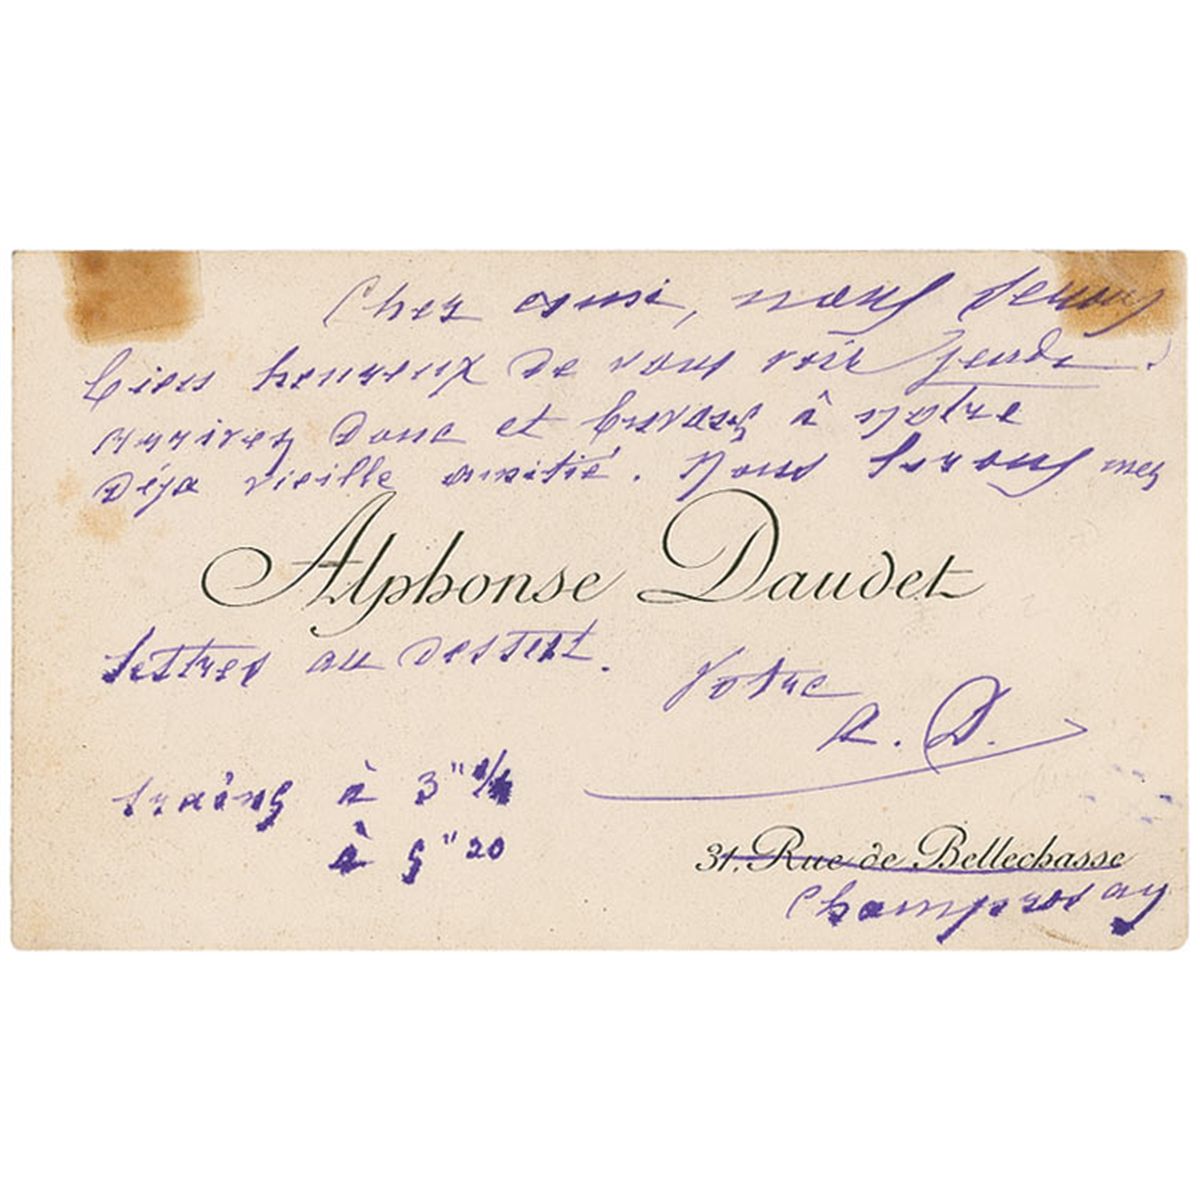 Cher ami, nous serons
bien heureux de vous voir jeudi.
arrivez donc et buvons à notre
déja vieille amitié. Nous lirons mes
Alphonse Daudet
lettres au dessert.
Votre
A. D.
trains à 3"
à 5"20
31, Rue de Bellechasse
Champrosay